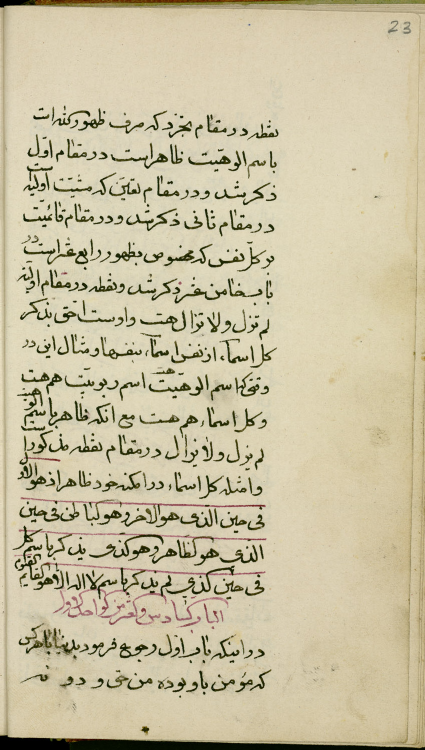 23
نقطه در مقام تجرّد که صرف ظهور الله است
باسم الوهیّت ظاهر است در مقام اوّل
ذکر شد و در مقام تعیّن که مشیّت اوّلیّه است
در مقام ثانی ذکر شد و در مقام قائمیّت
بر کلّ نفس که مخصوص بظهور رابع عشر است در
باب خامس عشر ذکر شد و نقطه در مقام اوّلیّه
لم تزل و لا تزال هست و اوست احقّ بذکر
کلّ اسماء از نفس اسماء بنفسها و مثال این در
وقتی که اسم الوهیّت هست اسم ربوبیّت هم هست
و کلّ اسماء هم هست مع آنکه ظاهر باسم الوهیّت
لم یزل و لا یزال در مقام نقطه مذکور است
و امثله کلّ اسماء در امکنه خود ظاهر اذ هو الاوّل
فی حین الذی هو الاخر و هو الباطن فی حین
الذی هو الظاهر و هو الذی یذکر باسم کلّ
فی حین الذی لم یذکر باسم لا اله الا هو القائم القیّوم
الباب السادس و العشر من الواحد الاوّل
در اینکه باب اوّل رجوع فرمود بدنیا با هر کس
که مؤمن باو بوده من حقّ و دو نه